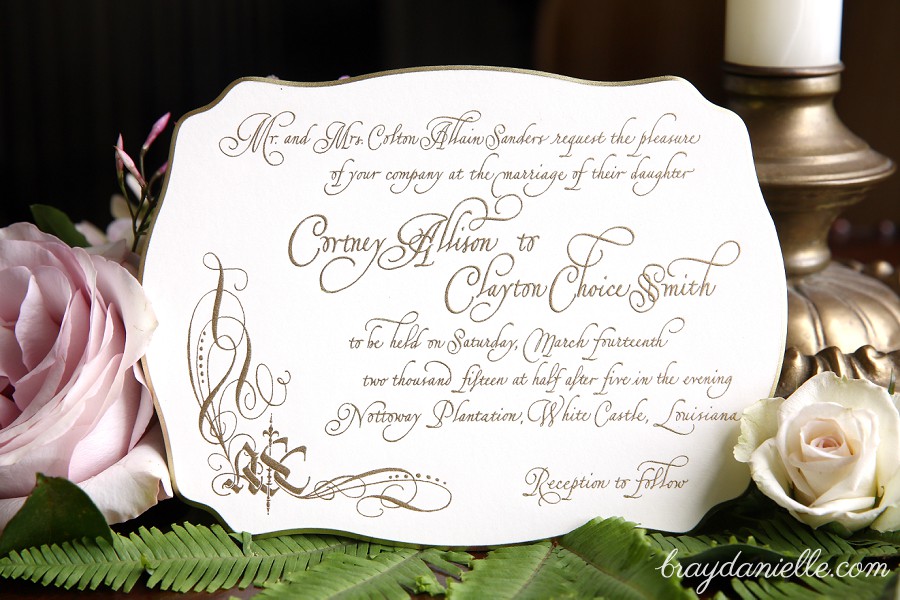 Mr. and Mrs. Colton Allain Sanders request the pleasure
of your company at the marriage of their daughter
Cortney Allison to
Clayton Choice Smith
to be held on Saturday, March fourteenth
two thousand fifteen at half after five in the evening
Nottoway Plantation, White Castle, Louisiana
Reception to follow
braydanielle.com